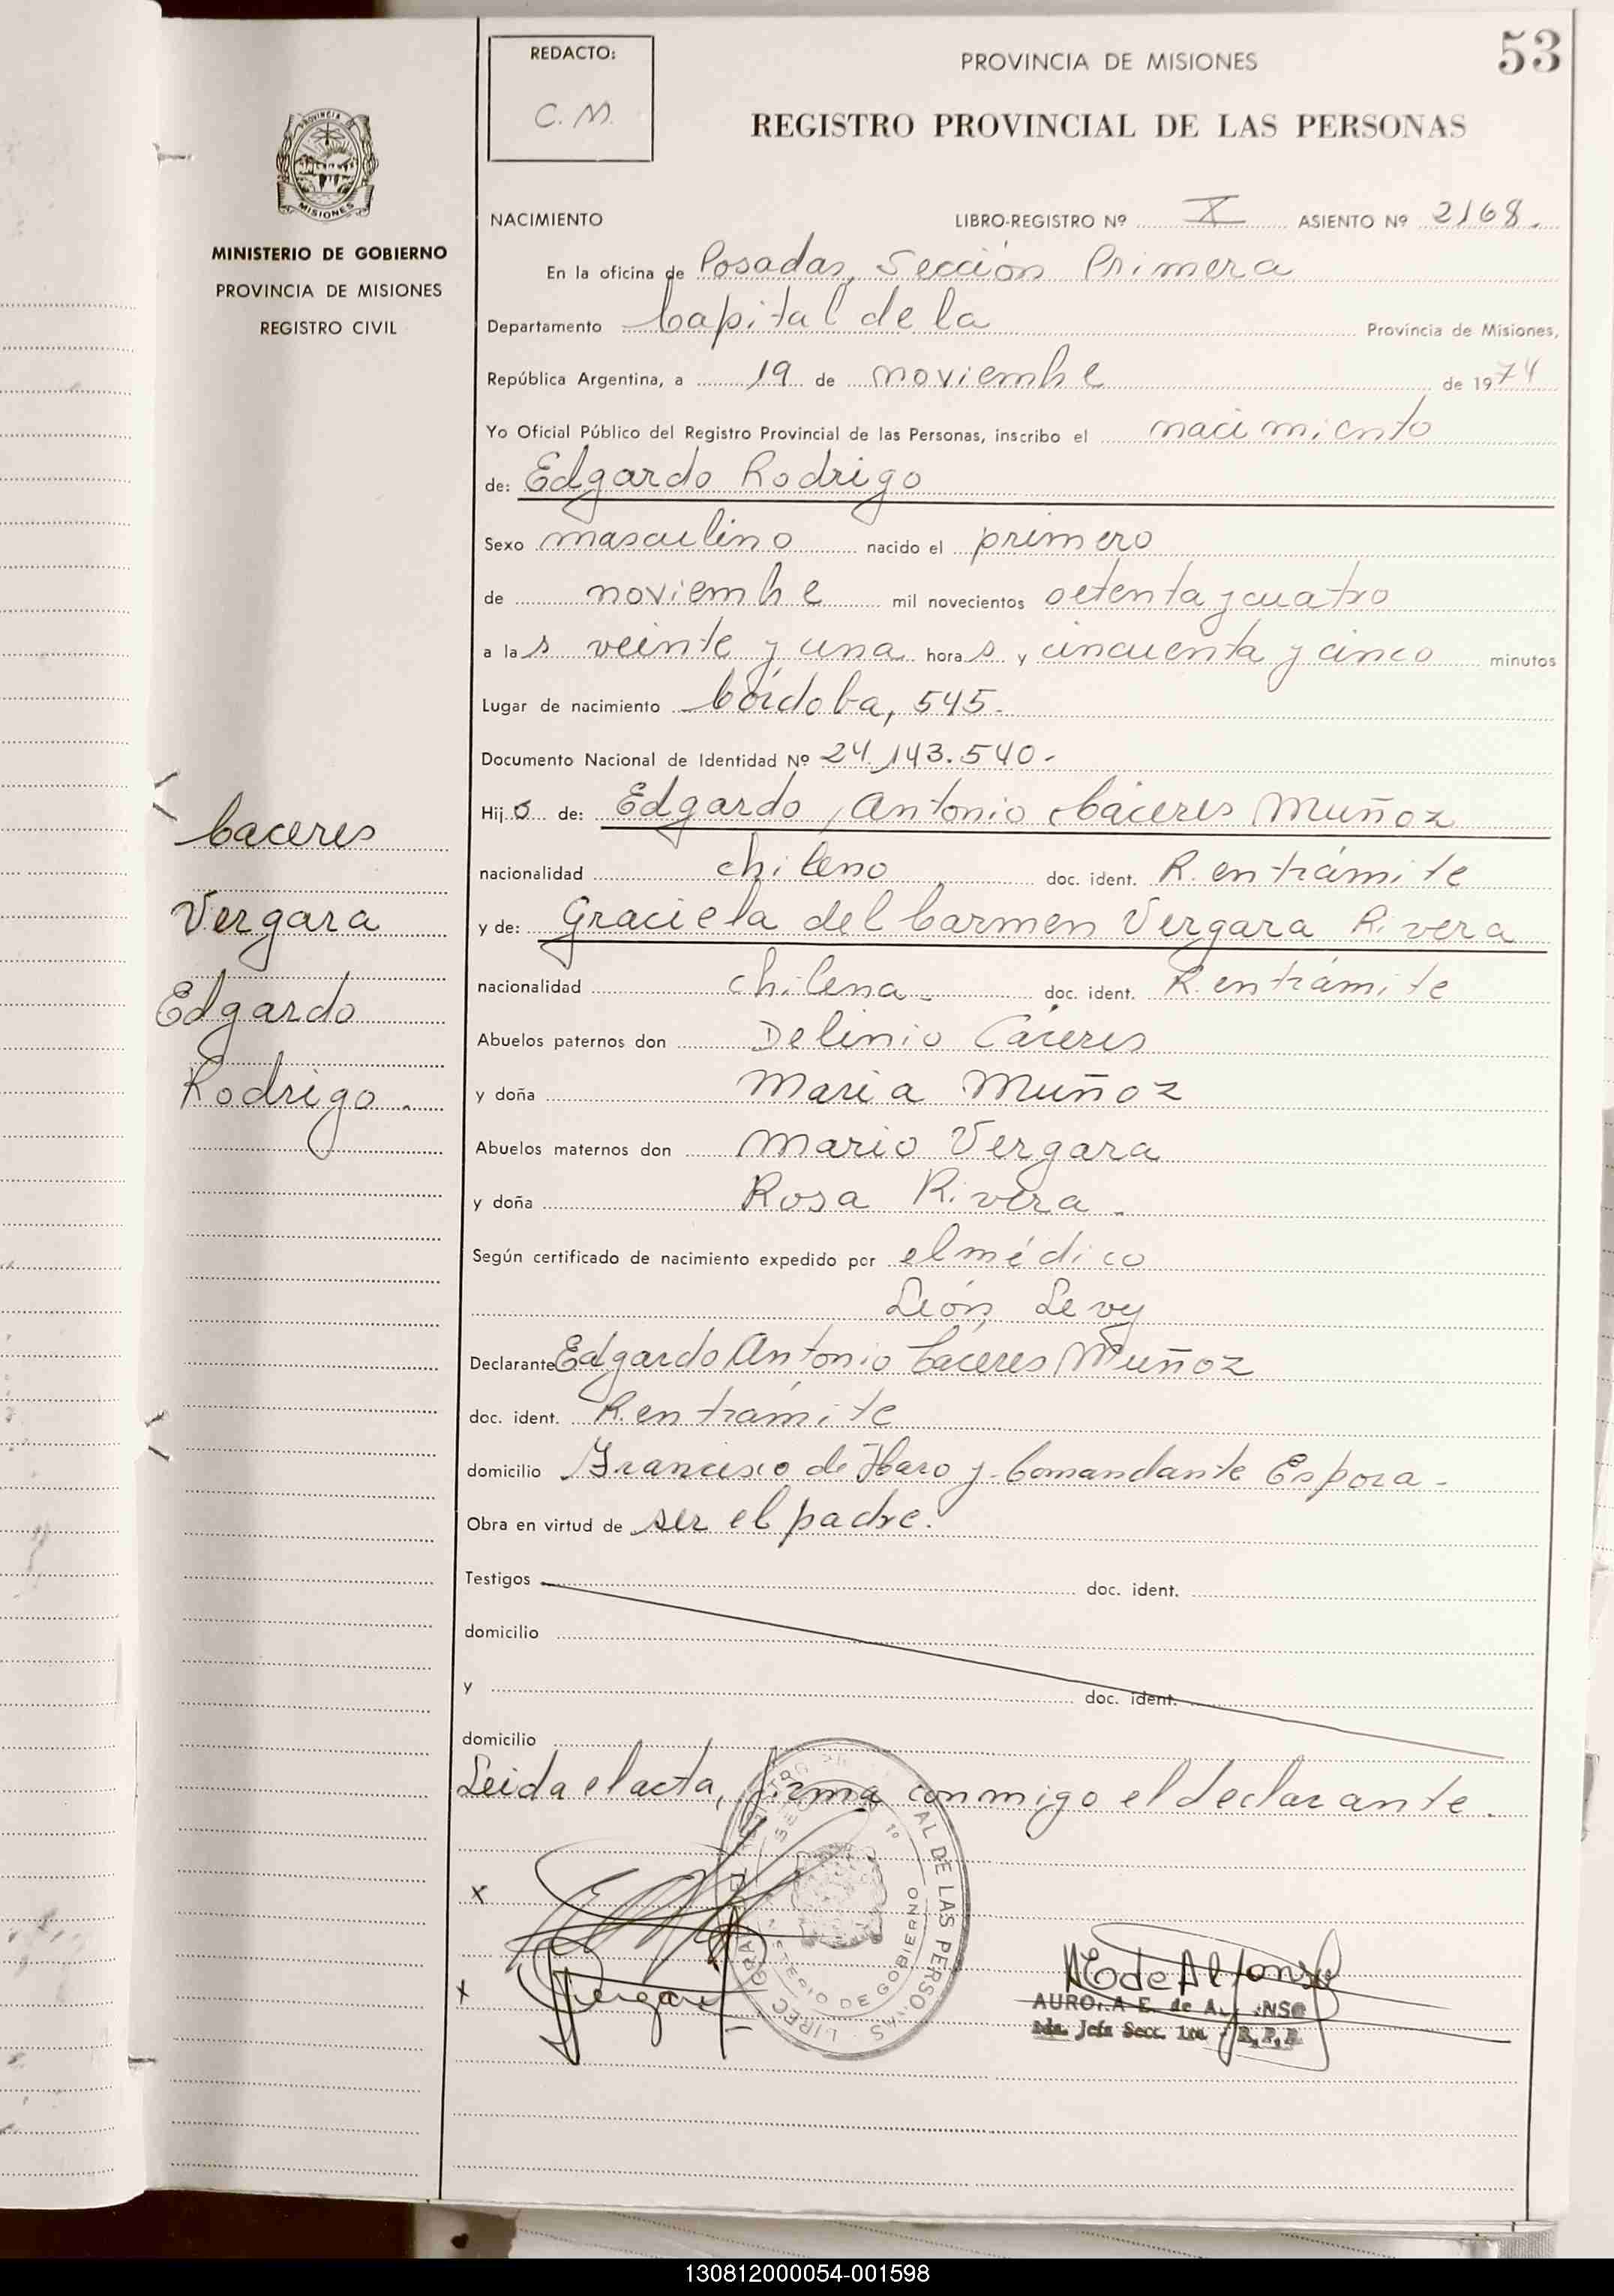 53
REDACTO:
C. M.
PROVINCIA DE MISIONES
REGISTRO PROVINCIAL DE LAS PERSONAS
MISIONES
MINISTERIO DE GOBIERNO
PROVINCIA DE MISIONES
REGISTRO CIVIL
NACIMIENTO LIBRO-REGISTRO Nº X ASIENTO Nº 2168.
En la oficina de Posadas, Sección Primera
Departamento Capital de la Provincia de Misiones,
República Argentina, a 19 de noviembre de 1974
Yo Oficial Público del Registro Provincial de las Personas, inscribo el nacimiento
de: Edgardo Rodrigo
Sexo masculino nacido el primero
de noviembre mil novecientos setenta y cuatro
a las veinte y una horas y cincuenta y cinco minutos
Lugar de nacimiento Córdoba, 545.
Documento Nacional de Identidad Nº 24.143.540.
Hijo de: Edgardo Antonio Cáceres Muñoz
nacionalidad chileno doc. ident. R. en trámite
y de: Graciela del Carmen Vergara Rivera
nacionalidad chilena. doc. ident. R. en trámite
Abuelos paternos don Delinio Cáceres
y doña Maria Muñoz
Abuelos maternos don Mario Vergara
y doña Rosa Rivera.
Según certificado de nacimiento expedido por el médico
León Levy
Declarante Edgardo Antonio Cáceres Muñoz
doc. ident. R. en trámite
domicilio Francisco de Haro y Comandante Espora.
Obra en virtud de ser el padre.
Testigos doc. ident.
domicilio
y doc. ident.
domicilio
Leida el acta, firma conmigo el declarante.
Caceres
Vergara
Edgardo
Rodrigo.
x
x Vergara
AL DE LAS PERSONAS
MINISTERIO DE GOBIERNO
AE de Alfonso
AURORA E. de ALFONSO
2da. Jefa Secc. 1ra. - R.P.P.
130812000054-001598